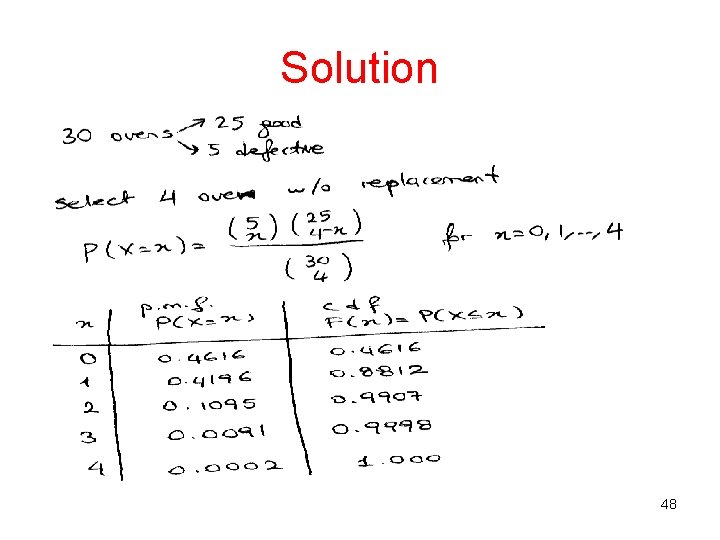 Solution
30 ovens → 25 good
→ 5 defective
select 4 oven w/o replacement
P(X=x) = (5 x) (25 4-x) / (30 4) for x=0,1,...,4
x p.m.f. P(X=x) cdf F(x)=P(X≤x)
0 0.4616 0.4616
1 0.4196 0.8812
2 0.1095 0.9907
3 0.0091 0.9998
4 0.0002 1.000
48